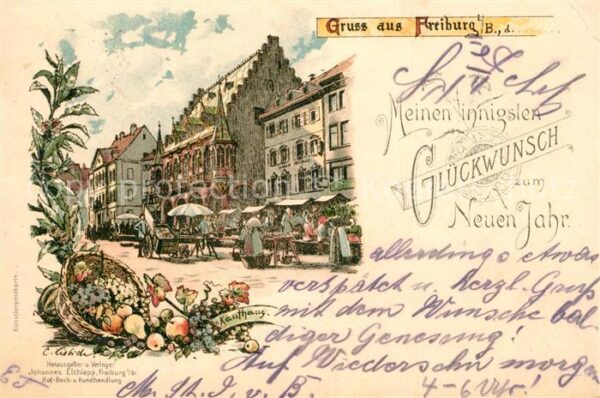 Gruss aus Freiburg i/B., d.
Meinen innigsten
GLÜCKWUNSCH
zum
Neuen Jahr.
allerdings etwas
verspätet u. herzl. Gruß
mit dem Wunsche bal-
diger Genesung!
Auf Wiedersehn morgen
4-6 Uhr!
Kaufhaus.
Künstlerpostkarte.
Herausgeber u. Verleger
Johannes Elchlepp, Freiburg i/Br.
Hof-Buch- u. Kunsthandlung.
M. St. I. v. B.